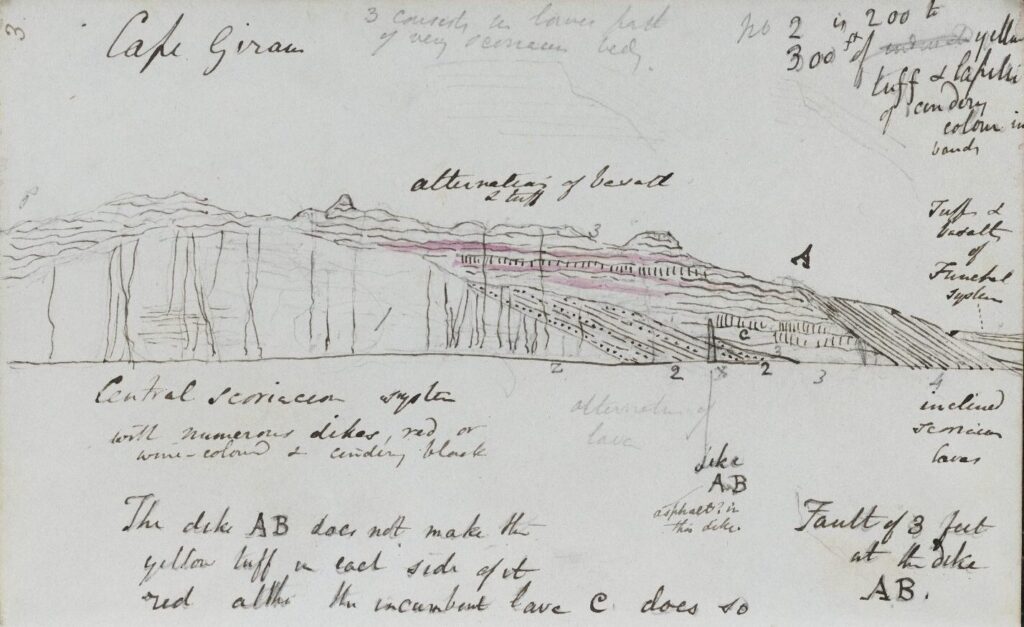 3
Cape Giram
3 consists in lower part
of very scoriaceous bed.
No 2 is 200 to
300 ft of yellow
tuff & lapilli
of cindery
colour in
bands
alternation of basalt
& tuff
3
A
Tuffs &
basalts
of
Funchal
system
C
3
2
2
2
3
4
Central scoriaceous system
with numerous dikes, red or
wine-colour & cindery black
alternation of
lava
dike
AB
asphalt? in
this dike.
inclined
scoriaceous
lavas
The dike AB does not make the
yellow tuff in each side of it
red altho the incumbent lava C does so
Fault of 3 feet
at the dike
AB.